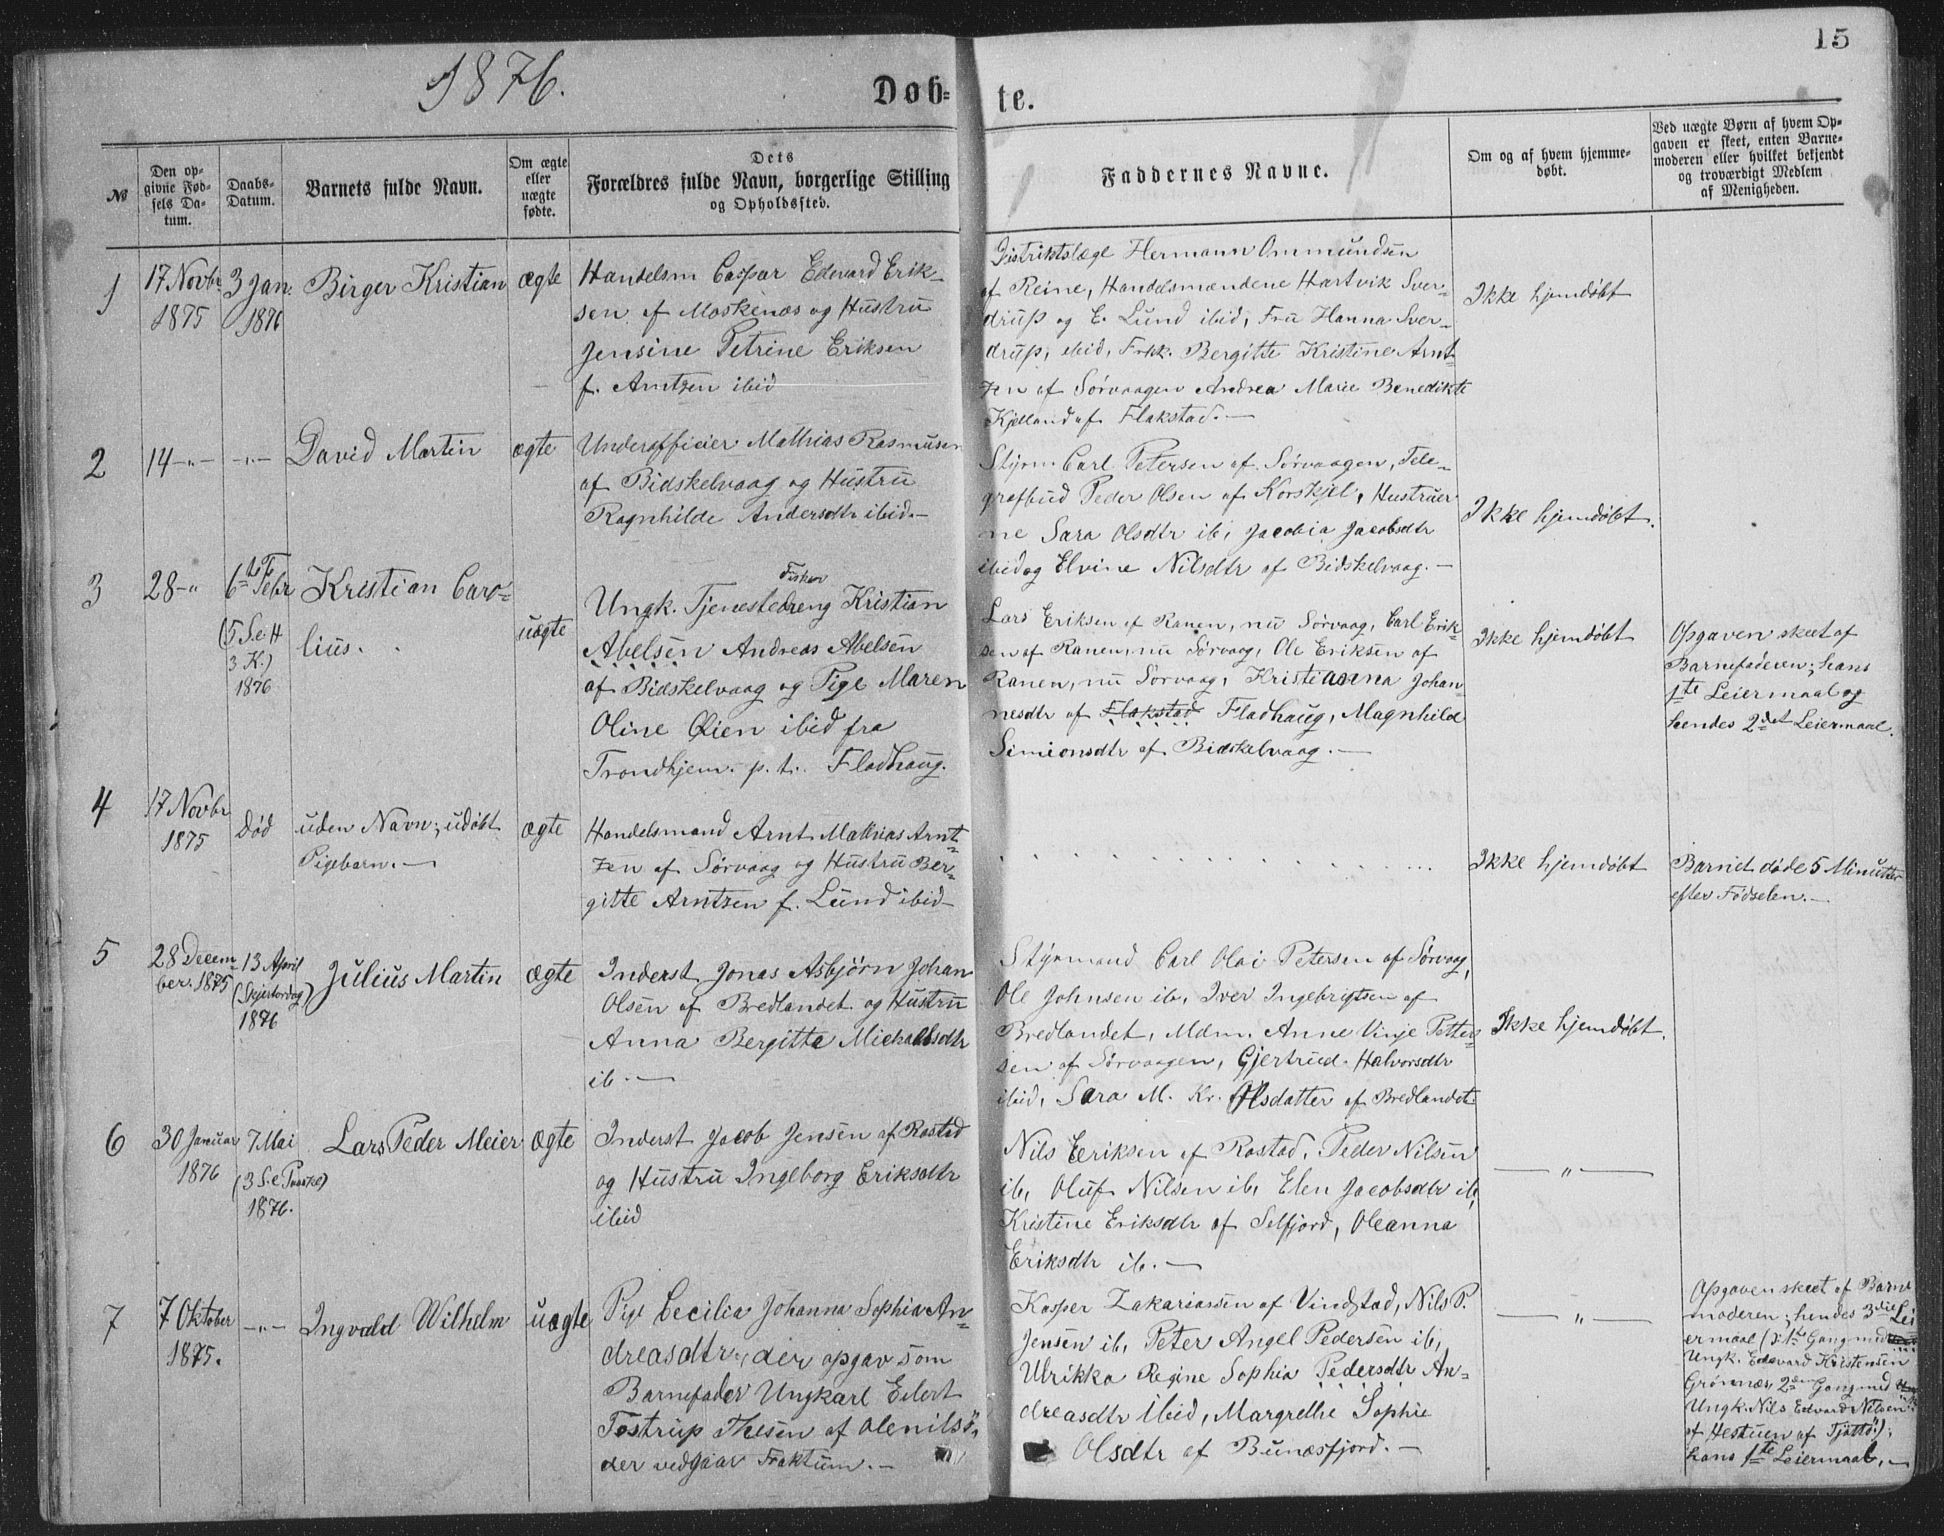 15
1876.
Døb-
te.
№
Den op-
givne Fød-
sels Da-
tum.
Daabs-
Datum.
Barnets fulde Navn.
Om ægte
eller
uægte
fødte.
Dets
Forældres fulde Navn, borgerlige Stilling
og Opholdssted.
Faddernes Navne.
Om og af hvem hjemme-
døbt.
Ved uægte Børn af hvem Op-
gaven er skeet, enten Barne-
moderen eller hvilket bekjendt
og troværdigt Medlem
af Menigheden.
1
17 Novbr
1875
3 Jan.
1876
Birger Kristian
ægte
Handelsm Caspar Edevard Erik-
sen af Moskenæs og Hustru
Jensine Petrine Eriksen
f. Arntzen ibid
Distriktslæge Hermann Ommundsen
af Reine, Handelsmændene Hartvik Sver-
drup og E. Lund ibid, Fru Hanna Sver-
drup, ibid, Frkk. Bergitte Kristine Arnt-
zen af Sørvaagen Andrea Marie Benedikte
Kjelland af Flakstad. —
Ikke hjemdøbt
2
14 -„-
-„-
David Martin
ægte
Underofficier Mathias Rasmusen
af Bidskelvaag og Hustru
Ragnhilde Andersdtr ibid. —
Styrm Carl Petersen af Sørvaagen, Tele-
grafbud Peder Olsen af Korskjel, Hustruer
ne Sara Olsdtr ib, Jacobia Jacobsdtr
ibid og Elvine Nilsdtr af Bidskelvaag. —
Ikke hjemdøbt.
3
28 -„
6te Febr
(5 S. e. H
3 K.)
1876
Kristian Caro-
lius.
uægte
Fisker
Ungk. Tjenestedreng Kristian
Abelsen Andreas Abelsen
af Bidskelvaag og Pige Maren
Oline Øien ibid fra
Trondhjem. p. t. Fladhaug.
Lars Eriksen af Ranen, nu Sørvaag, Carl Erik-
sen af Ranen, nu Sørvaag, Ole Eriksen af
Ranen, nu Sørvaag, Kristianna Johan-
nesdtr af Flakstad Fladhaug, Magnhild
Simionsdtr af Bidskelvaag. —
Ikke hjemdøbt
Opgaven skeet af
Barnefaderen; hans
1te Leiermaal og
hendes 2det Leiermaal.
4
17 Novbr
1875
Død
uden Navn; udøbt
Pigebarn. —
ægte
Handelsmand Arnt Mathias Arnt-
zen af Sørvaag og Hustru Ber-
gitte Arntzen f. Lund ibid
Ikke hjemdøbt
Barnet døde 5 Minutter
efter Fødselen. —
5
28 Decem-
ber. 1875
13 April
(Skjertordag)
1876
Julius Martin
ægte
Inderst Jonas Asbjørn Johan
Olsen af Bredlandet og Hustru
Anna Bergitta Michaelsdtr
ib. —
Styrmand Carl Olai Petersen af Sørvaag,
Ole Johnsen ib, Iver Ingebrigtsen af
Bredlandet, Mdm. Anne Vinje Petter-
sen af Sørvaagen, Gjertrud Halvorsdtr
ibid, Sara M. Kr. Olsdatter af Bredlandet.
Ikke hjemdøbt.
6
30 Januar
1876
7 Mai
(3 S. e. Paaske)
1876.
Lars Peder Meier
ægte
Inderst Jacob Jensen af Rostad
og Hustru Ingeborg Eriksdtr
ibid
Nils Eriksen af Rostad, Peder Nilsen
ib, Oluf Nilsen ib, Elen Jacobsdtr ib,
Kristine Eriksdtr af Selfjord, Oleanna
Eriksdtr ib. —
— „ —
7
7 Oktober
1875.
-„-
Ingvald Wilhelm
uægte
Pige Cecilia Johanna Sophia An-
dreasdtr, der opgav som
Barnefader Ungkarl Eilert
Tostrup Ilesen af Olenilsö,
der vedgaar Faktum. —
Kasper Zakariassen af Vindstad, Nils P.
Jensen ib, Peter Angel Pedersen ib,
Ulrikka Regine Sophia Pedersdtr An-
dreasdtr ibid, Margrethe Sophie
Olsdtr af Bunæsfjord. —
— „ —
Opgaven skeet af Barne
moderen; hendes 3die Lei
ermaal (1ste Gang med
Ungk. Edevard Kristensen
Grønnæs, 2den Gang med
Ungk. Nils Edvard Nilsen
af Hestuen af Tjøttö);
hans 1te Leiermaal. —